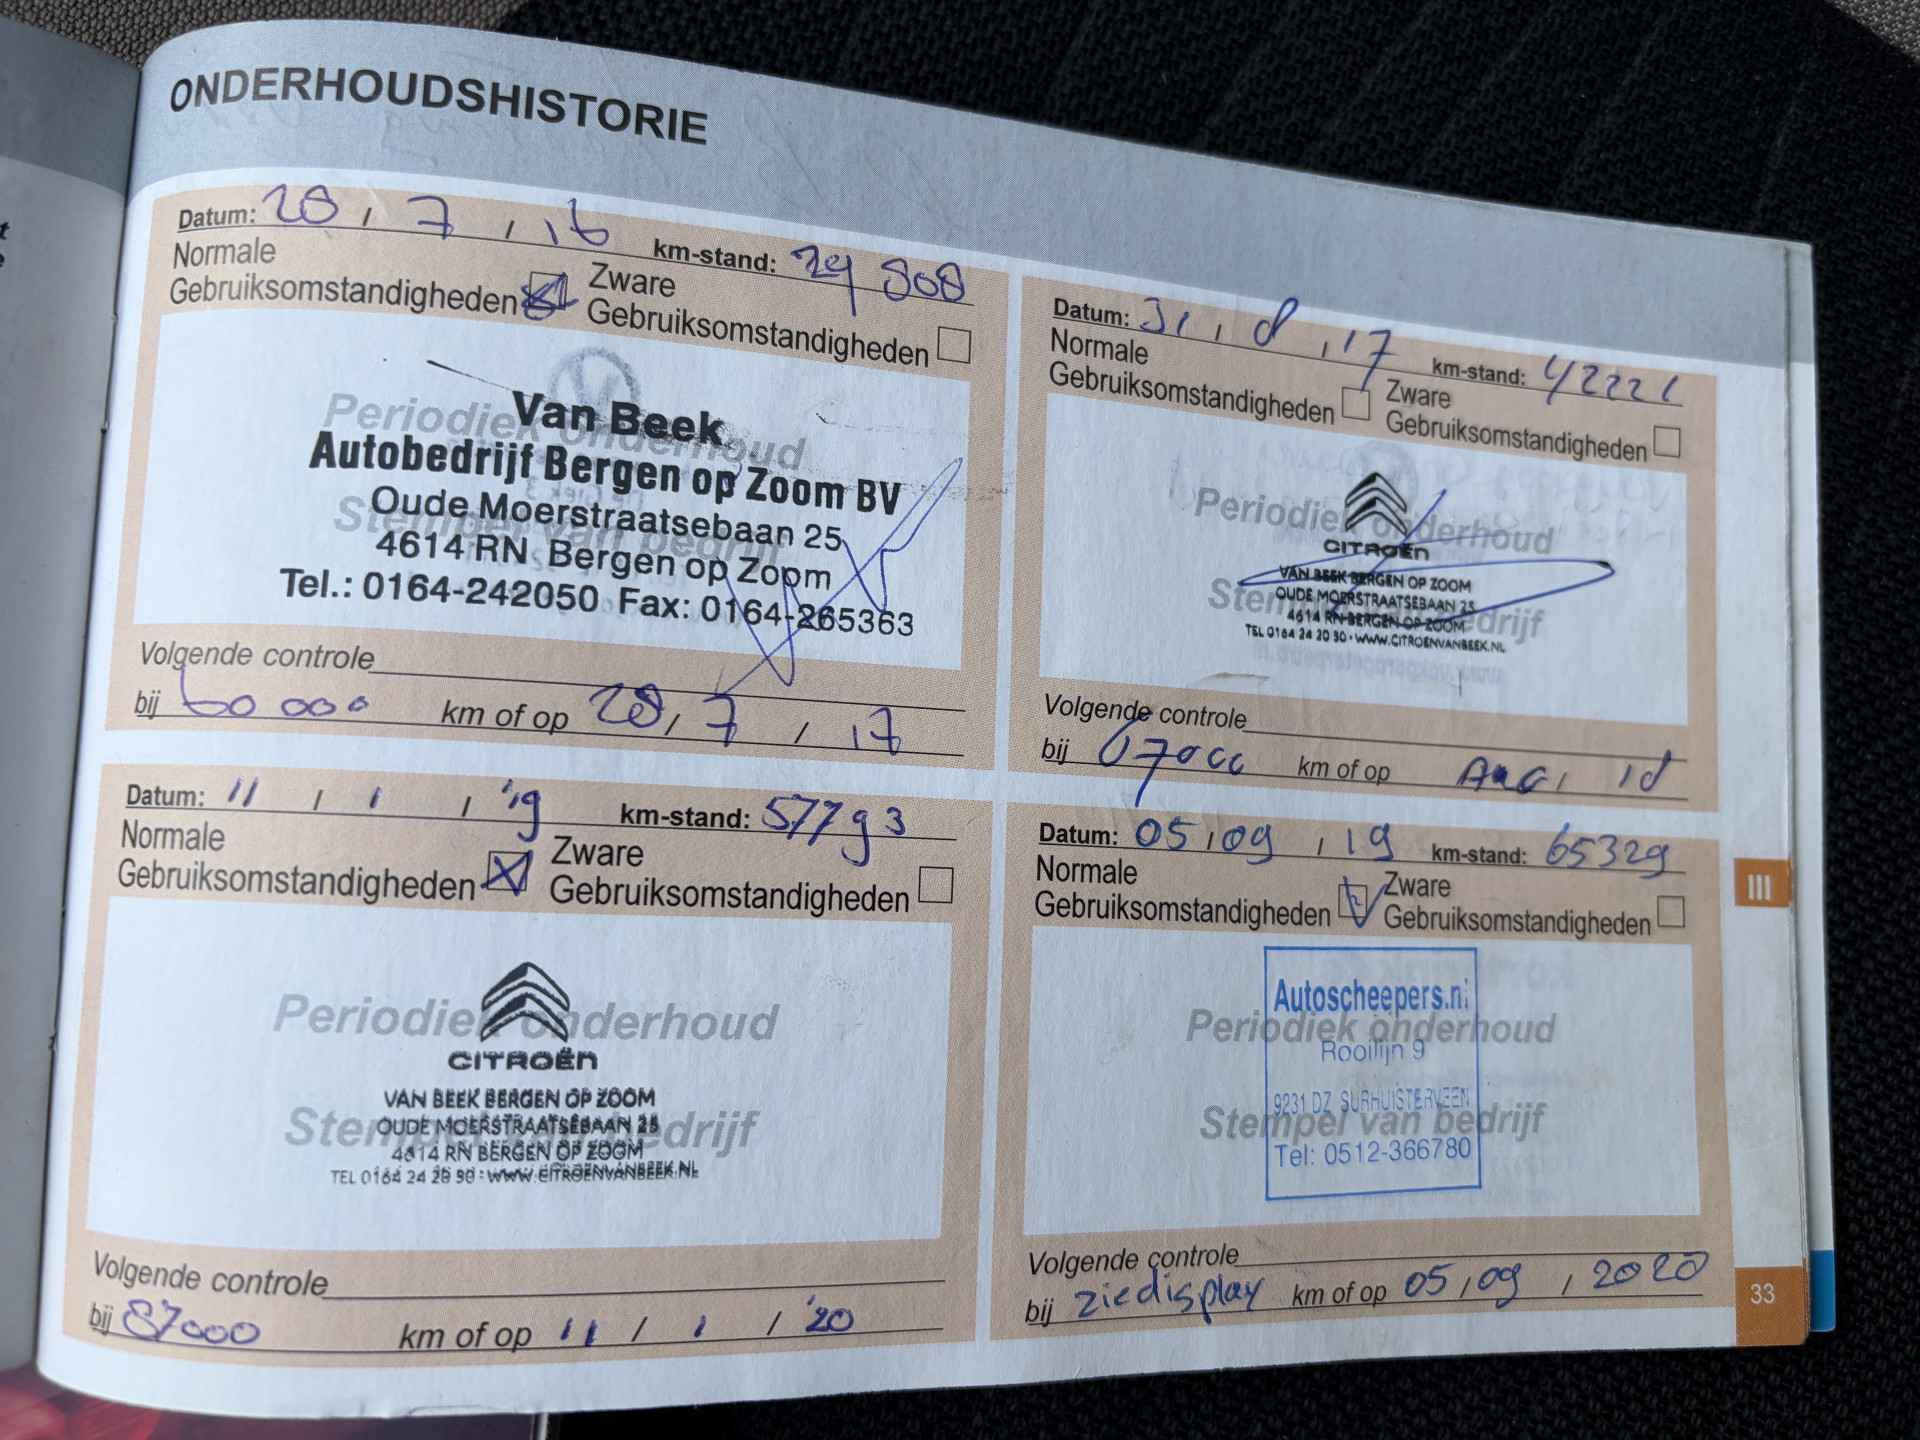 ONDERHOUDSHISTORIE
Datum: 28 / 7 / 16 km-stand: 29 808
Normale Gebruiksomstandigheden Zware Gebruiksomstandigheden
Periodiek onderhoud
Stempel van bedrijf
Van Beek
Autobedrijf Bergen op Zoom BV
Oude Moerstraatsebaan 25
4614 RN Bergen op Zoom
Tel.: 0164-242050 Fax: 0164-265363
Volgende controle
bij 60 000 km of op 28 / 7 / 17
Datum: 31 / 8 / 17 km-stand: 42221
Normale Gebruiksomstandigheden Zware Gebruiksomstandigheden
Periodiek onderhoud
Stempel van bedrijf
CITROËN
VAN BEEK BERGEN OP ZOOM
OUDE MOERSTRAATSEBAAN 25
4614 RN BERGEN OP ZOOM
TEL 0164 24 20 50 · WWW.CITROENVANBEEK.NL
Volgende controle
bij 67000 km of op Aug, 18
Datum: 11 / 1 / '19 km-stand: 57793
Normale Gebruiksomstandigheden Zware Gebruiksomstandigheden
Periodiek onderhoud
Stempel van bedrijf
CITROËN
VAN BEEK BERGEN OP ZOOM
OUDE MOERSTRAATSEBAAN 25
4614 RN BERGEN OP ZOOM
TEL 0164 24 20 50 · WWW.CITROENVANBEEK.NL
Volgende controle
bij 87000 km of op 11 / 1 / '20
Datum: 05 / 09 / 19 km-stand: 65329
Normale Gebruiksomstandigheden Zware Gebruiksomstandigheden
Periodiek onderhoud
Stempel van bedrijf
Autoscheepers.nl
Rooilijn 9
9231 DZ SURHUISTERVEEN
Tel: 0512-366780
Volgende controle
bij zie display km of op 05 / 09 / 2020
III
33